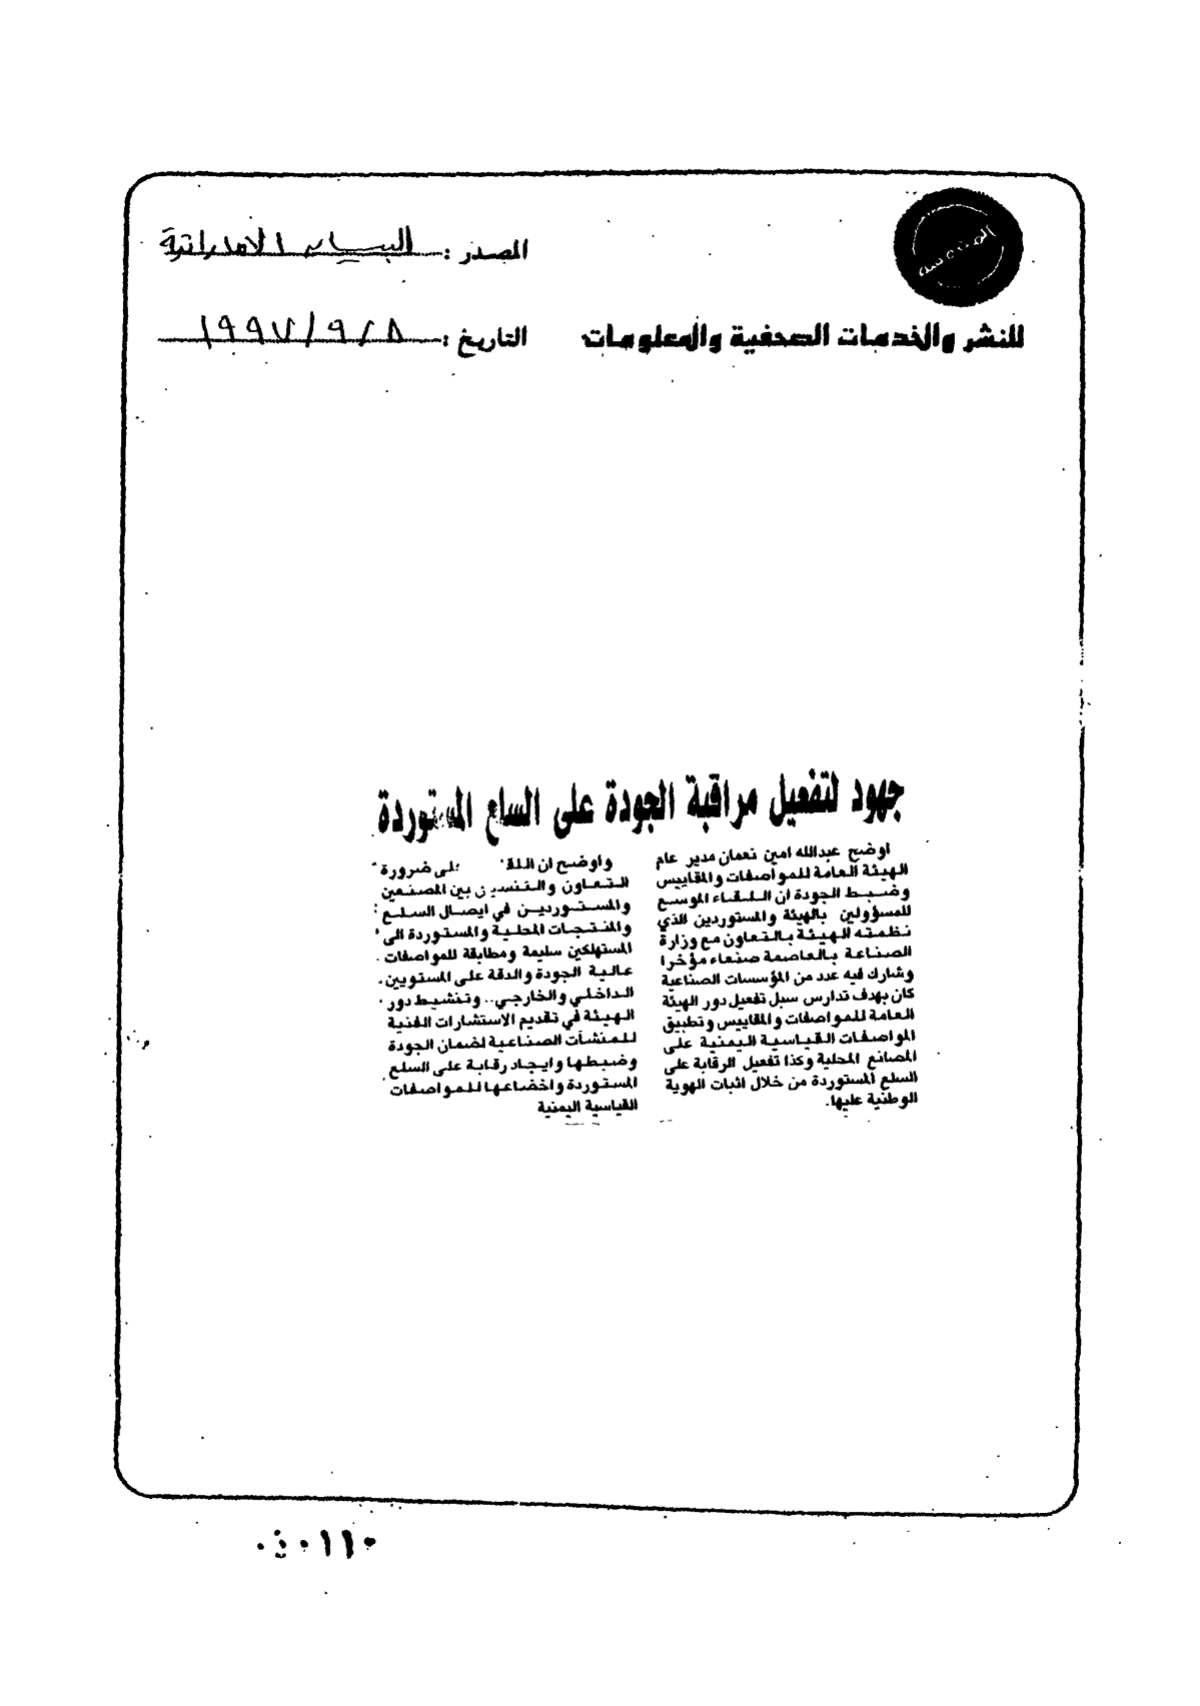 المصدر : البيان الاماراتية
للنشر والخدمات الصحفية والمعلومات
التاريخ : ١٩٩٧/٩/٨
جهود لتفعيل مراقبة الجودة على السلع المستوردة
اوضح عبدالله امين نعمان مدير عام
الهيئة العامة للمواصفات والمقاييس
وضبط الجودة ان اللقاء الموسع
للمسؤولين بالهيئة والمستوردين الذي
نظمته الهيئة بالتعاون مع وزارة
الصناعة بالعاصمة صنعاء مؤخرا
وشارك فيه عدد من المؤسسات الصناعية
كان بهدف تدارس سبل تفعيل دور الهيئة
العامة للمواصفات والمقاييس وتطبيق
المواصفات القياسية اليمنية على
المصانع المحلية وكذا تفعيل الرقابة على
السلع المستوردة من خلال اثبات الهوية
الوطنية عليها.
واوضح ان على ضرورة
التعاون والتنسيق بين المصنعين
والمستوردين في ايصال السلع
والمنتجات المحلية والمستوردة الى
المستهلكين سليمة ومطابقة للمواصفات
عالية الجودة والدقة على المستويين
الداخلي والخارجي.. وتنشيط دور
الهيئة في تقديم الاستشارات الفنية
للمنشآت الصناعية لضمان الجودة
وضبطها وايجاد رقابة على السلع
المستوردة واخضاعها للمواصفات
القياسية اليمنية